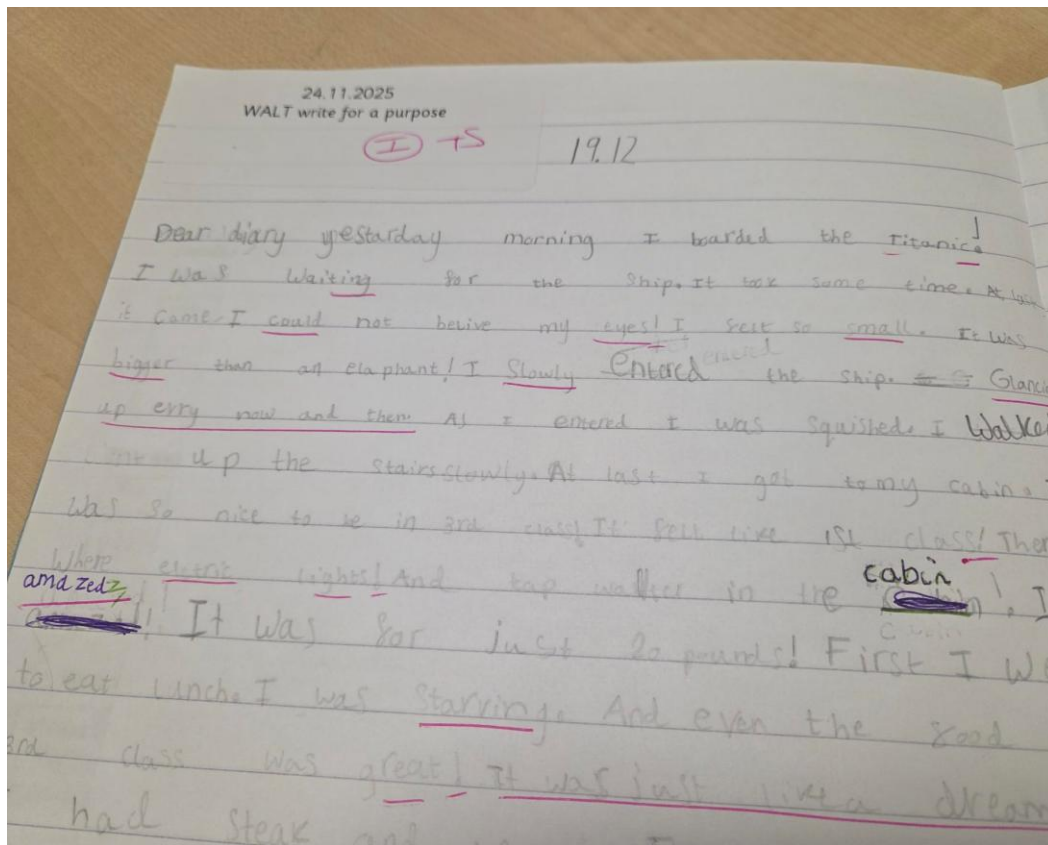 24.11.2025
WALT write for a purpose
I +S
19.12
Dear diary yestarday morning I boarded the Titanic!
I was waiting for the ship. It took some time. At last
it came I could not belive my eyes! I felt so small. It was
bigger than an elaphant! I Slowly Entered the ship. Glancin
up erry now and then. As I entered I was squished. I Walke
up the stairs slowly. At last I got to my cabin.
Was so nice to be in 3rd class! It felt like 1st class! Ther
Where eletric lights! And tap watter in the cabin! I
amazed! It was for just 20 pounds! First I W
to eat lunch. I was Starving. And even the food
3rd class was great! It was just like a dream
had steak and